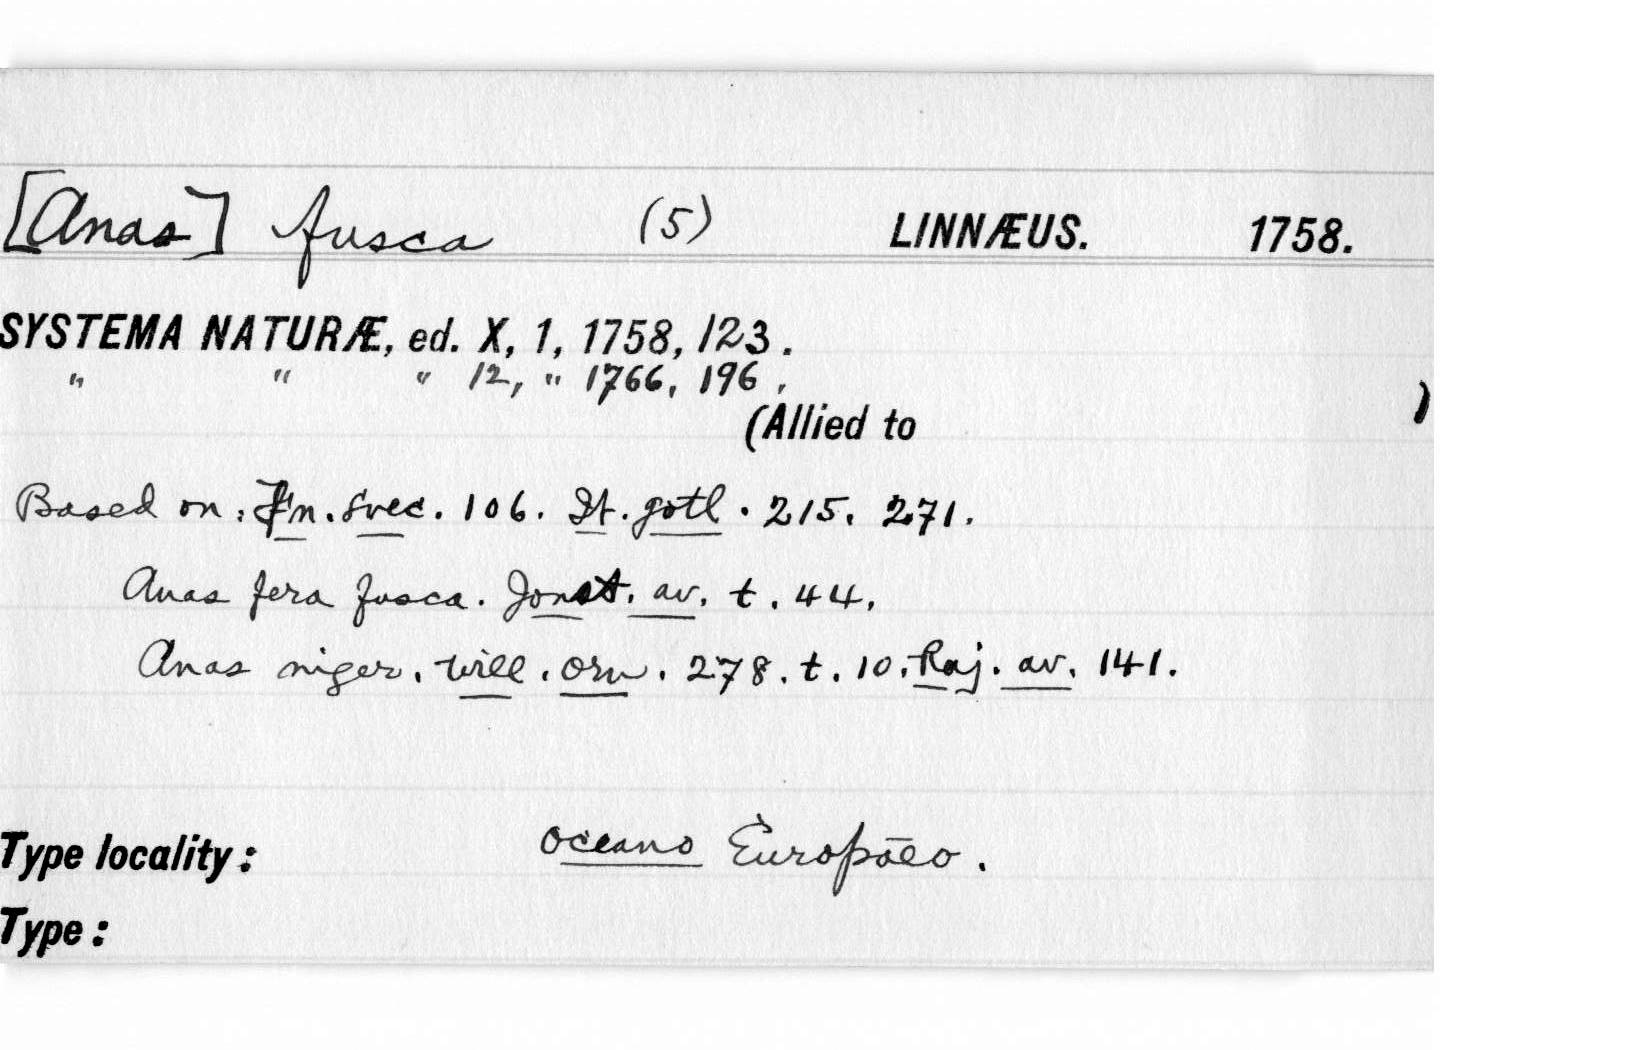 [Anas] fusca (5) LINNÆUS. 1758.
SYSTEMA NATURÆ, ed. X, 1, 1758, 123.
" " " 12, " 1766, 196.
(Allied to )
Based on: Fn. Svec. 106. It. gotl. 215. 271.
Anas fera fusca. Jonst. av. t. 44.
Anas niger. Will. orn. 278. t. 10. Raj. av. 141.
Type locality: Oceano Europæo.
Type: